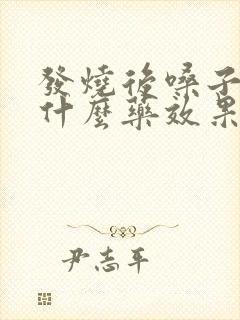 發燒後嗓子
什麼藥效果
尹志平